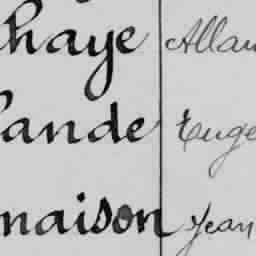 haye Allan
ande Euge
naison Jean